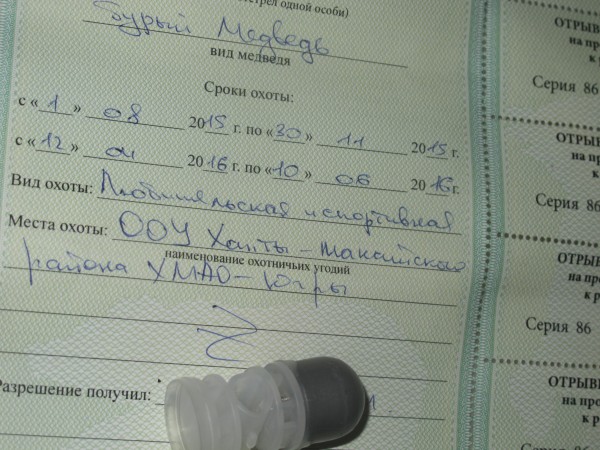 трел одной особи)
бурый Медведь
вид медведя
Сроки охоты:
с «1» 08 2015 г. по «30» 11 2015 г.
с «12» 04 2016 г. по «10» 06 2016 г.
Вид охоты: Любительская и спортивная
Места охоты: ООУ Ханты-Мансийского
наименование охотничьих угодий
района ХМАО-Югры
Разрешение получил:
ОТРЫВ
на про
к р
Серия 86
ОТРЫВ
на пр
к р
Серия 86
ОТРЫВ
на про
к р
Серия 86
ОТРЫВ
на про
к р